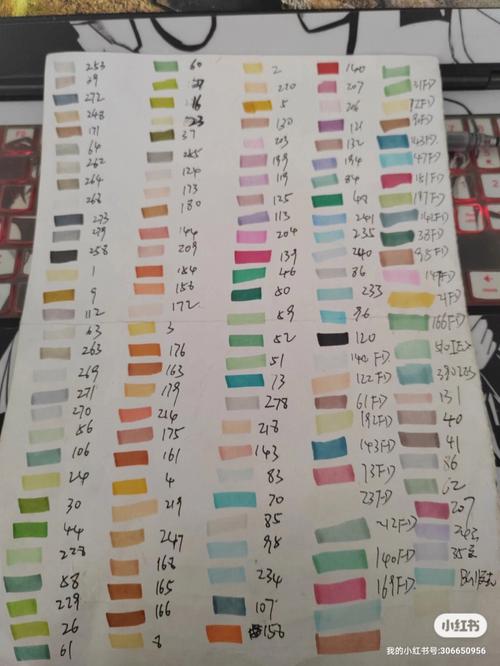 253
29
272
248
171
64
262
264
268
273
279
258
1
9
112
63
263
269
271
270
56
106
24
30
44
228
58
229
26
61
60
27
16
23
37
265
124
173
180
144
209
154
156
172
3
176
163
179
214
175
161
4
219
247
168
165
166
8
2
220
5
130
203
199
119
125
113
204
139
46
50
59
52
51
73
278
218
143
83
70
85
98
234
107
156
140
207
206
121
132
194
84
48
241
235
240
86
233
96
120
140FD
122FD
61FD
192FD
143FD
73FD
237FD
212FD
140FD
169FD
31FD
72FD
98FD
43FD
47FD
151FD
197FD
142FD
38FD
95FD
147FD
71FD
166FD
131
40
41
86
62
207
小红书
我的小红书号:306650956